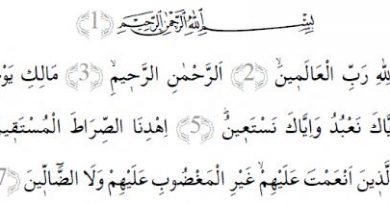 بِسْمِ اللّٰهِ الرَّحْمٰنِ الرَّحِيمِ (1)
لّٰهِ رَبِّ الْعَالَمِينَۙ (2) اَلرَّحْمٰنِ الرَّحِيمِۙ (3) مَالِكِ يَوْ
يَّاكَ نَعْبُدُ وَاِيَّاكَ نَسْتَعِينُۜ (5) اِهْدِنَا الصِّرَاطَ الْمُسْتَقِي
لَّذِينَ اَنْعَمْتَ عَلَيْهِمْۙ غَيْرِ الْمَغْضُوبِ عَلَيْهِمْ وَلَا الضَّٓالِّينَ (7